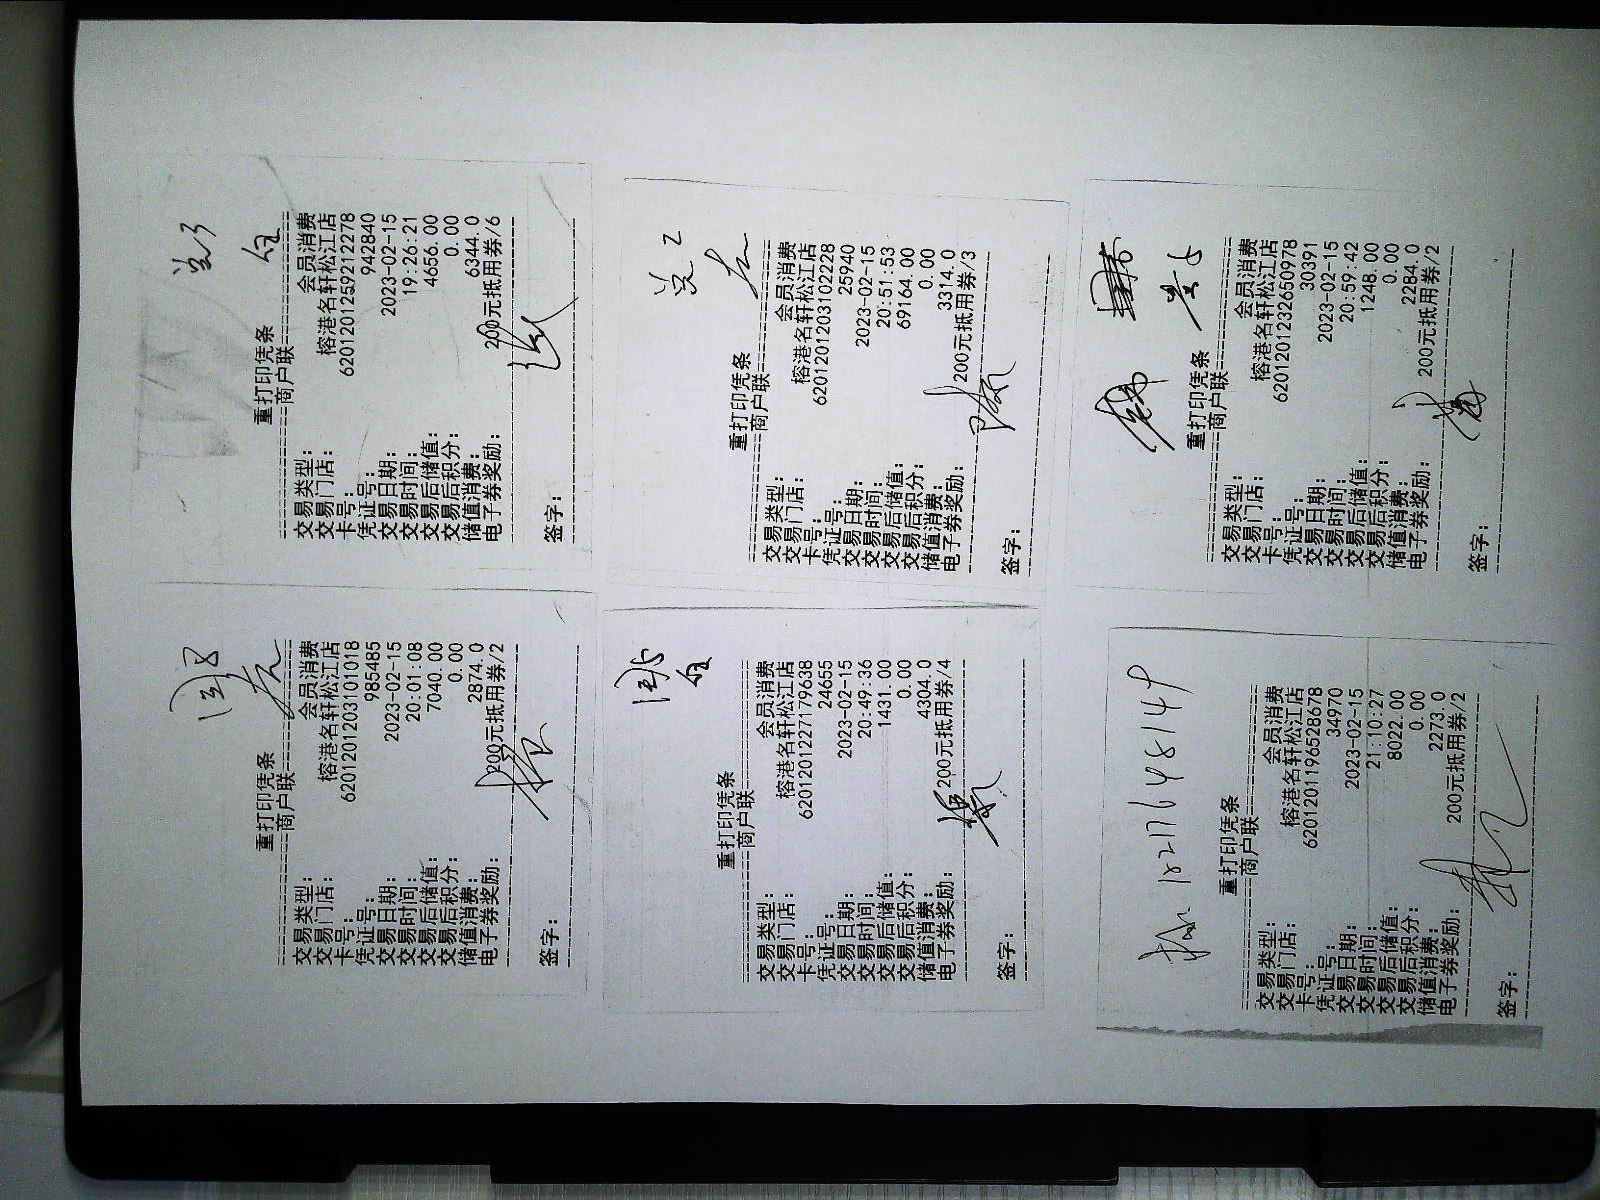 重打印凭条
商户联
交易类型： 会员消费
交易门店： 榕港名轩松江店
卡号： 6201201203101018
凭证号： 985485
交易日期： 2023-02-15
交易时间： 20:01:08
交易后储值： 7040.00
交易后积分： 0.00
储值消费： 2874.0
电子券奖励： 200元抵用券/2
签字：
重打印凭条
商户联
交易类型： 会员消费
交易门店： 榕港名轩松江店
卡号： 6201201259212278
凭证号： 942840
交易日期： 2023-02-15
交易时间： 19:26:21
交易后储值： 4656.00
交易后积分： 0.00
储值消费： 6344.0
电子券奖励： 200元抵用券/6
签字：
重打印凭条
商户联
交易类型： 会员消费
交易门店： 榕港名轩松江店
卡号： 6201201227179638
凭证号： 24655
交易日期： 2023-02-15
交易时间： 20:49:36
交易后储值： 1431.00
交易后积分： 0.00
储值消费： 4304.0
电子券奖励： 200元抵用券/4
签字：
重打印凭条
商户联
交易类型： 会员消费
交易门店： 榕港名轩松江店
卡号： 6201201203102228
凭证号： 25940
交易日期： 2023-02-15
交易时间： 20:51:53
交易后储值： 69164.00
交易后积分： 0.00
储值消费： 3314.0
电子券奖励： 200元抵用券/3
签字：
18217648149
重打印凭条
商户联
交易类型： 会员消费
交易门店： 榕港名轩松江店
卡号： 6201201196528678
凭证号： 34970
交易日期： 2023-02-15
交易时间： 21:10:27
交易后储值： 8022.00
交易后积分： 0.00
储值消费： 2273.0
电子券奖励： 200元抵用券/2
签字：
重打印凭条
商户联
交易类型： 会员消费
交易门店： 榕港名轩松江店
卡号： 6201201232650978
凭证号： 30391
交易日期： 2023-02-15
交易时间： 20:59:42
交易后储值： 1248.00
交易后积分： 0.00
储值消费： 2284.0
电子券奖励： 200元抵用券/2
签字：